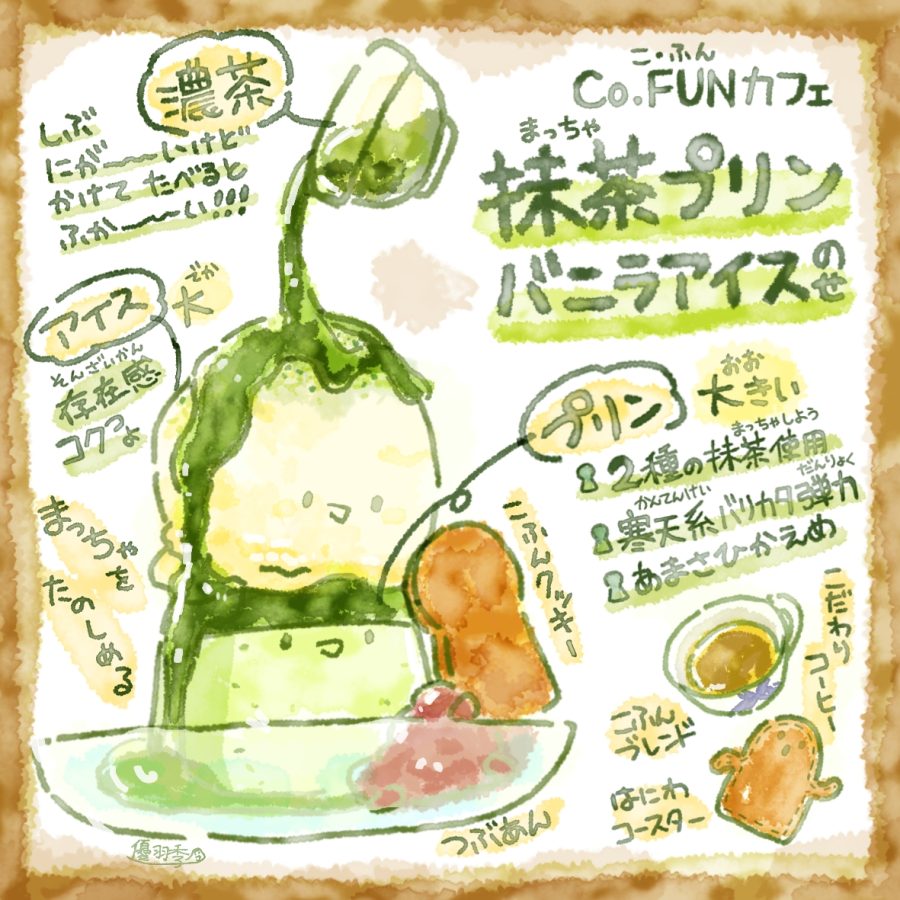 こ・ふん
Co.FUNカフェ
まっちゃ
抹茶プリン
バニラアイスのせ
濃茶
しぶ
にが〜〜いけど
かけてたべると
ふか〜〜い!!!
アイス
でか
大
そんざいかん
存在感
コクつよ
まっちゃを
たのしめる
プリン
おお
大きい
まっちゃしよう
2種の抹茶使用
かんてんけい だんりょく
寒天系バリカタ弾力
あまさひかえめ
こふんクッキー
こだわり
コーヒー
こふん
ブレンド
はにわ
コースター
つぶあん